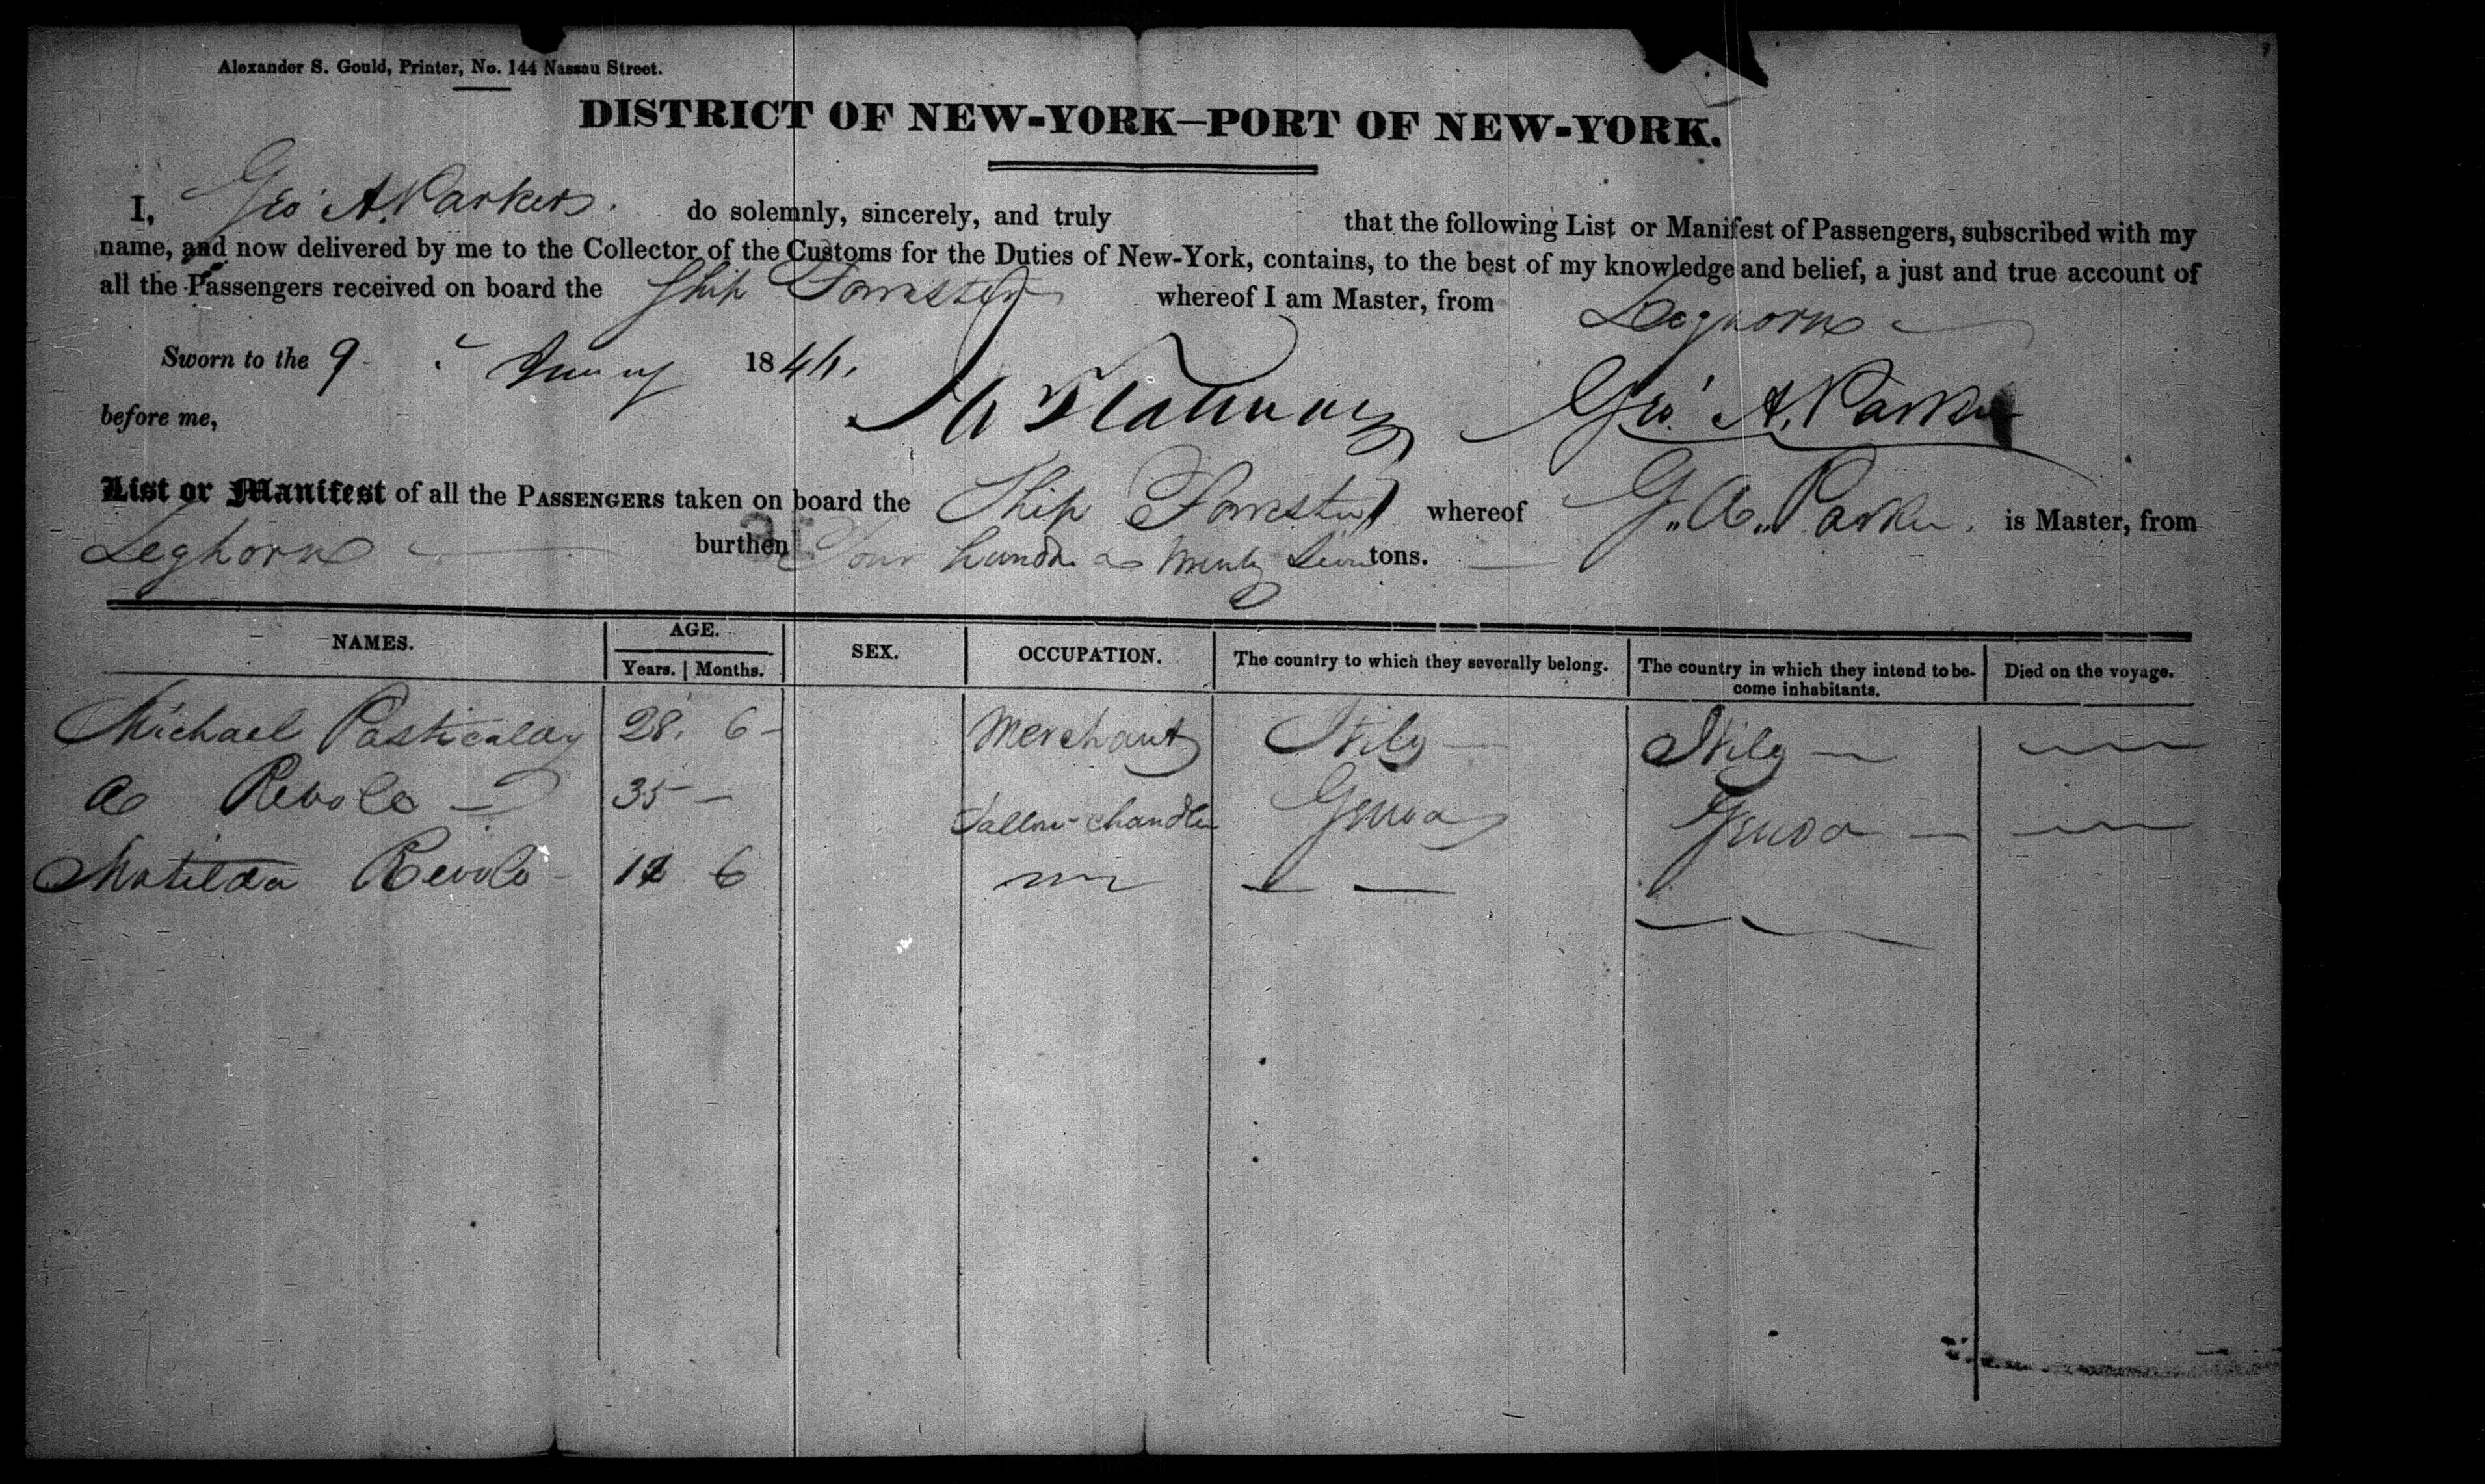 Alexander S. Gould, Printer, No. 144 Nassau Street.
DISTRICT OF NEW-YORK—PORT OF NEW-YORK.
I, Geo A. Parker do solemnly, sincerely, and truly that the following List or Manifest of Passengers, subscribed with my
name, and now delivered by me to the Collector of the Customs for the Duties of New-York, contains, to the best of my knowledge and belief, a just and true account of
all the Passengers received on board the Ship Forrester whereof I am Master, from Leghorn
Sworn to the 9 1846.
before me, Geo. A. Parker
List or Manifest of all the PASSENGERS taken on board the Ship Forrester whereof G. A. Parker is Master, from
Leghorn burthen Four hundd & twenty tons.
NAMES. AGE. SEX. OCCUPATION. The country to which they severally belong. The country in which they intend to be- Died on the voyage.
Years. Months. come inhabitants.
Michael 28. 6 Merchant
A Revolo 35 Tallow chandler Genoa Genoa
Matilda Revolo 6